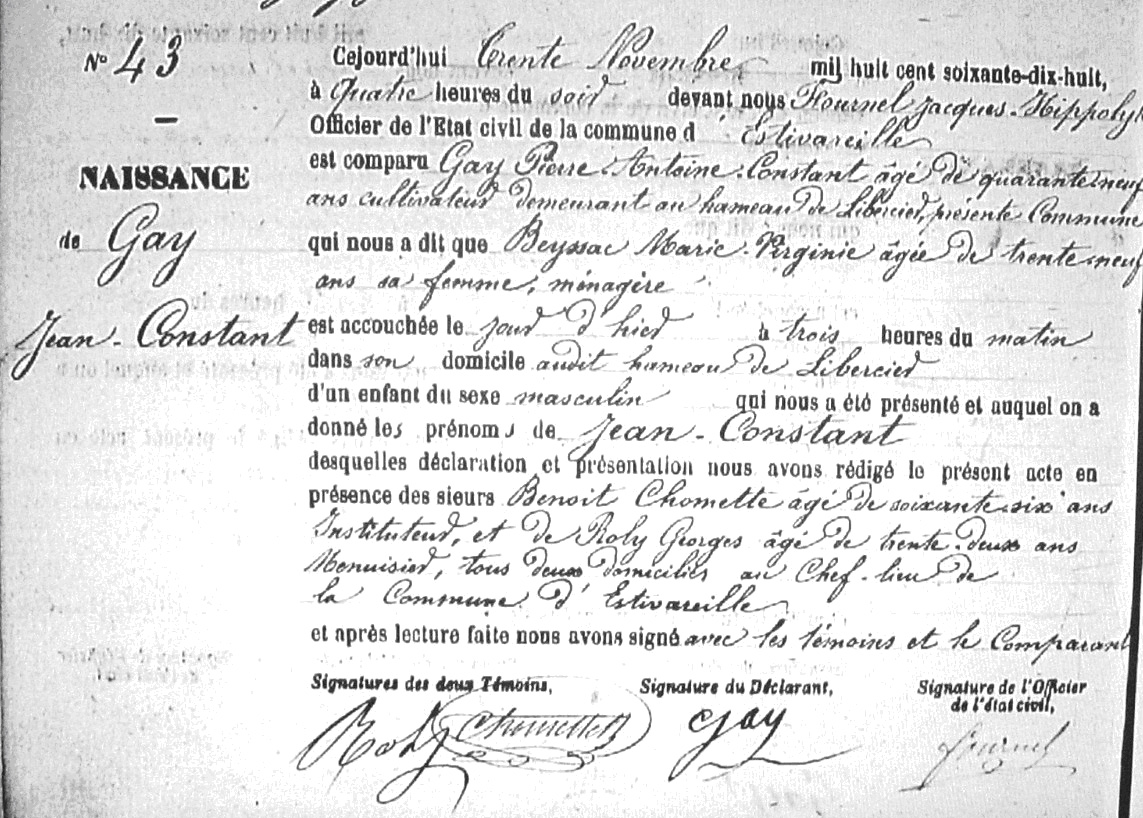 N° 43
NAISSANCE
de Gay
Jean-Constant
Cejourd'hui trente Novembre mil huit cent soixante-dix-huit,
à quatre heures du soir devant nous Flournel Jacques-Hippolyte
Officier de l'Etat civil de la commune d'Estivareille
est comparu Gay Pierre-Antoine-Constant âgé de quarante-neuf
ans cultivateur demeurant au hameau de Libercier, présente Commune
qui nous a dit que Beyssac Marie-Virginie âgée de trente-neuf
ans sa femme, ménagère
est accouchée le jour d'hier à trois heures du matin
dans son domicile audit hameau de Libercier
d'un enfant du sexe masculin qui nous a été présenté et auquel on a
donné les prénoms de Jean-Constant
desquelles déclaration et présentation nous avons rédigé le présent acte en
présence des sieurs Benoit Chomette âgé de soixante-six ans
Instituteur, et de Roly Georges âgé de trente-deux ans
Menuisier, tous deux domiciliés au Chef-lieu de
la Commune d'Estivareille
et après lecture faite nous avons signé avec les témoins et le Comparant
Signatures des deux Témoins, Signature du Déclarant, Signature de l'Officier
de l'état civil,
Roly Chomette Gay